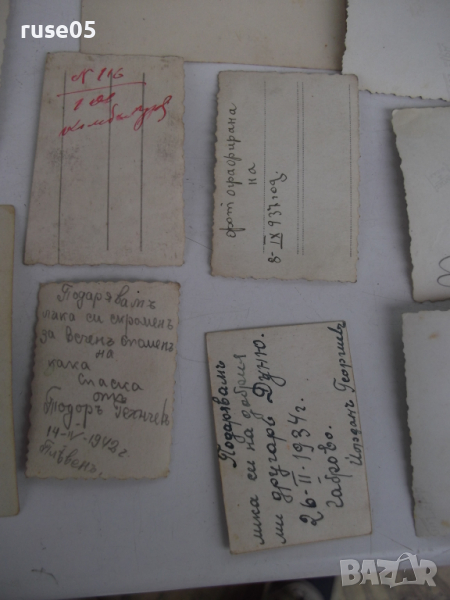 ruse05
N 116
фотографирана
на
8-IX 937 год.
Подарявамъ
лика си скроменъ
за вечен спомен
на
кака
Спаска
отъ
Тодоръ
14-IV-1942 г.
Плѣвенъ.
Подарявамъ
лика си на добрия
ми другарь Дуню.
26-II-1934 г.
Габрово.
Йорданъ Георгиевъ
BAZAR